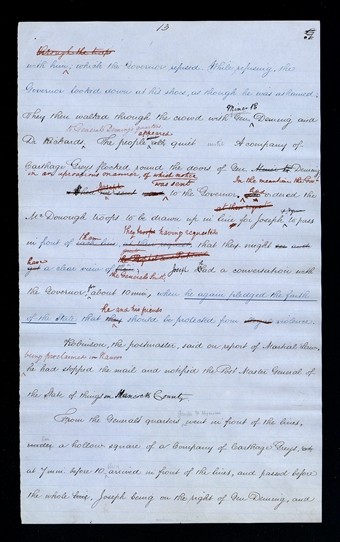 13
through the troops
with him, which the Governor refused. While refusing, the
Governor looked down at his shoes, as though he was ashamed.
Minor R
They then walked through the crowd with Gen. Deming and
appeared
Dr Richards. The people quiet A company of
Carthage Greys flocked round the doors of Gen Deming
in an uproarious manner, of which notice In the meantime the Gov
was sent to the Governor, ordered the
McDonough troops to be drawn up in line for Joseph to pass
they having requested
in front of that they might
have
a clear view of
the Generals Joseph had a conversation with
the Governor for about 10 min, when he again pledged the faith
he and his friends
of the State that they should be protected from violence.
Robinson, the postmaster, said on report of Martial Law
being proclaimed in Nauvoo
he had stopped the mail and notified the Post Master General of
the State of things in Hancock County
From the General's quarters went in front of the lines,
a hollow square of a Company of Carthage Greys,
at 7 min. before 10, arrived in front of the lines, and passed before
the whole Joseph being on the right of Gen Deming, and